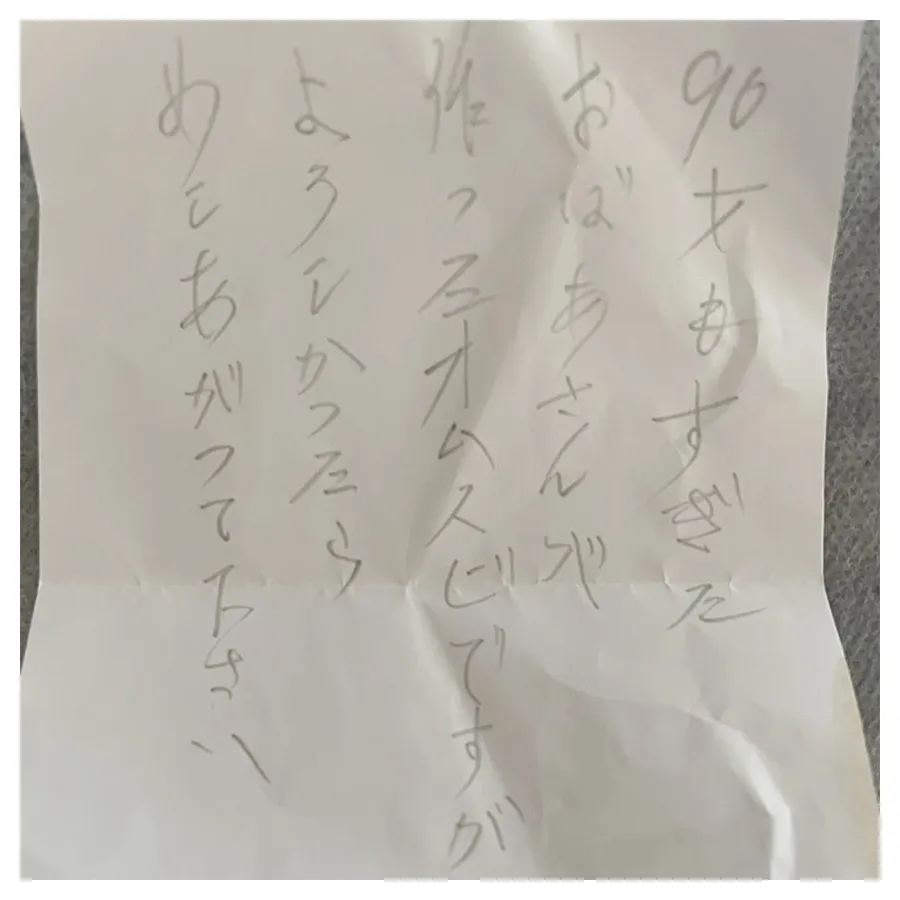 90才もすぎた
おばあさんが
作ったオムスビですが
よろしかったら
めしあがって下さい